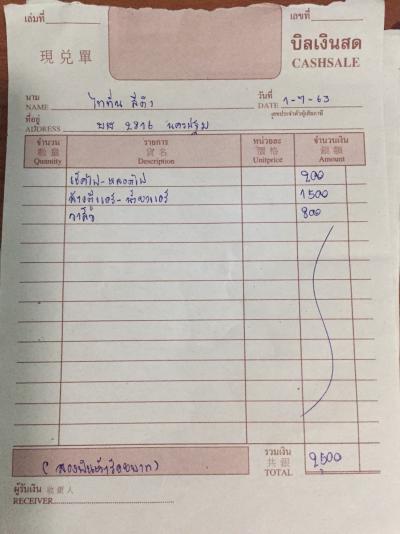 เล่มที่
เลขที่
現兌單
บิลเงินสด
CASHSALE
นาม
NAME
วันที่
DATE 1-7-63
ที่อยู่
ADDRESS 2816 นครปฐม
จำนวน รายการ หน่วยละ จำนวนเงิน
數量 貨名 價格 銀額
Quantity Description Unitprice Amount
เช็คไฟ-หลอดไฟ 200
ล้างตู้แอร์-น้ำยาแอร์ 1500
วาล์ว 800
รวมเงิน
共銀
TOTAL 2500
(สองพันห้าร้อยบาท)
ผู้รับเงิน 收銀人
RECEIVER